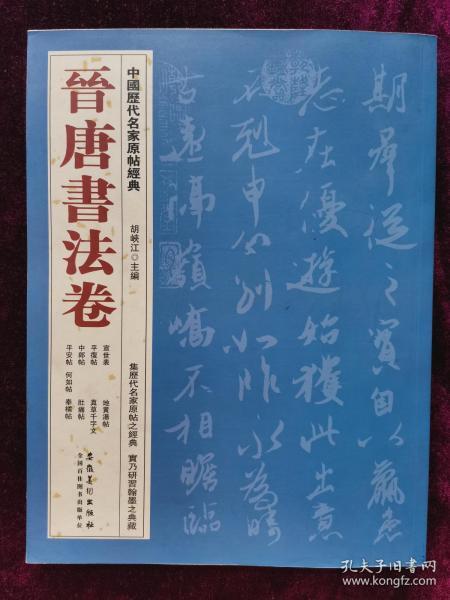 中國歷代名家原帖經典
晉唐書法卷
胡峽江◎主編
宣世表 地黃湯帖
平復帖 真草千字文
中郎帖 肚痛帖
平安帖 何如帖 奉橘帖
集歷代名家原帖之經典 實乃研習翰墨之典藏
安徽美術出版社
全国百佳图书出版单位
期群從之寶自以羸患
志在優遊始獲此出意
不剋申分別如昨永為疇
古遠隔嶺嶠不相瞻臨
孔夫子旧书网
www.kongfz.com